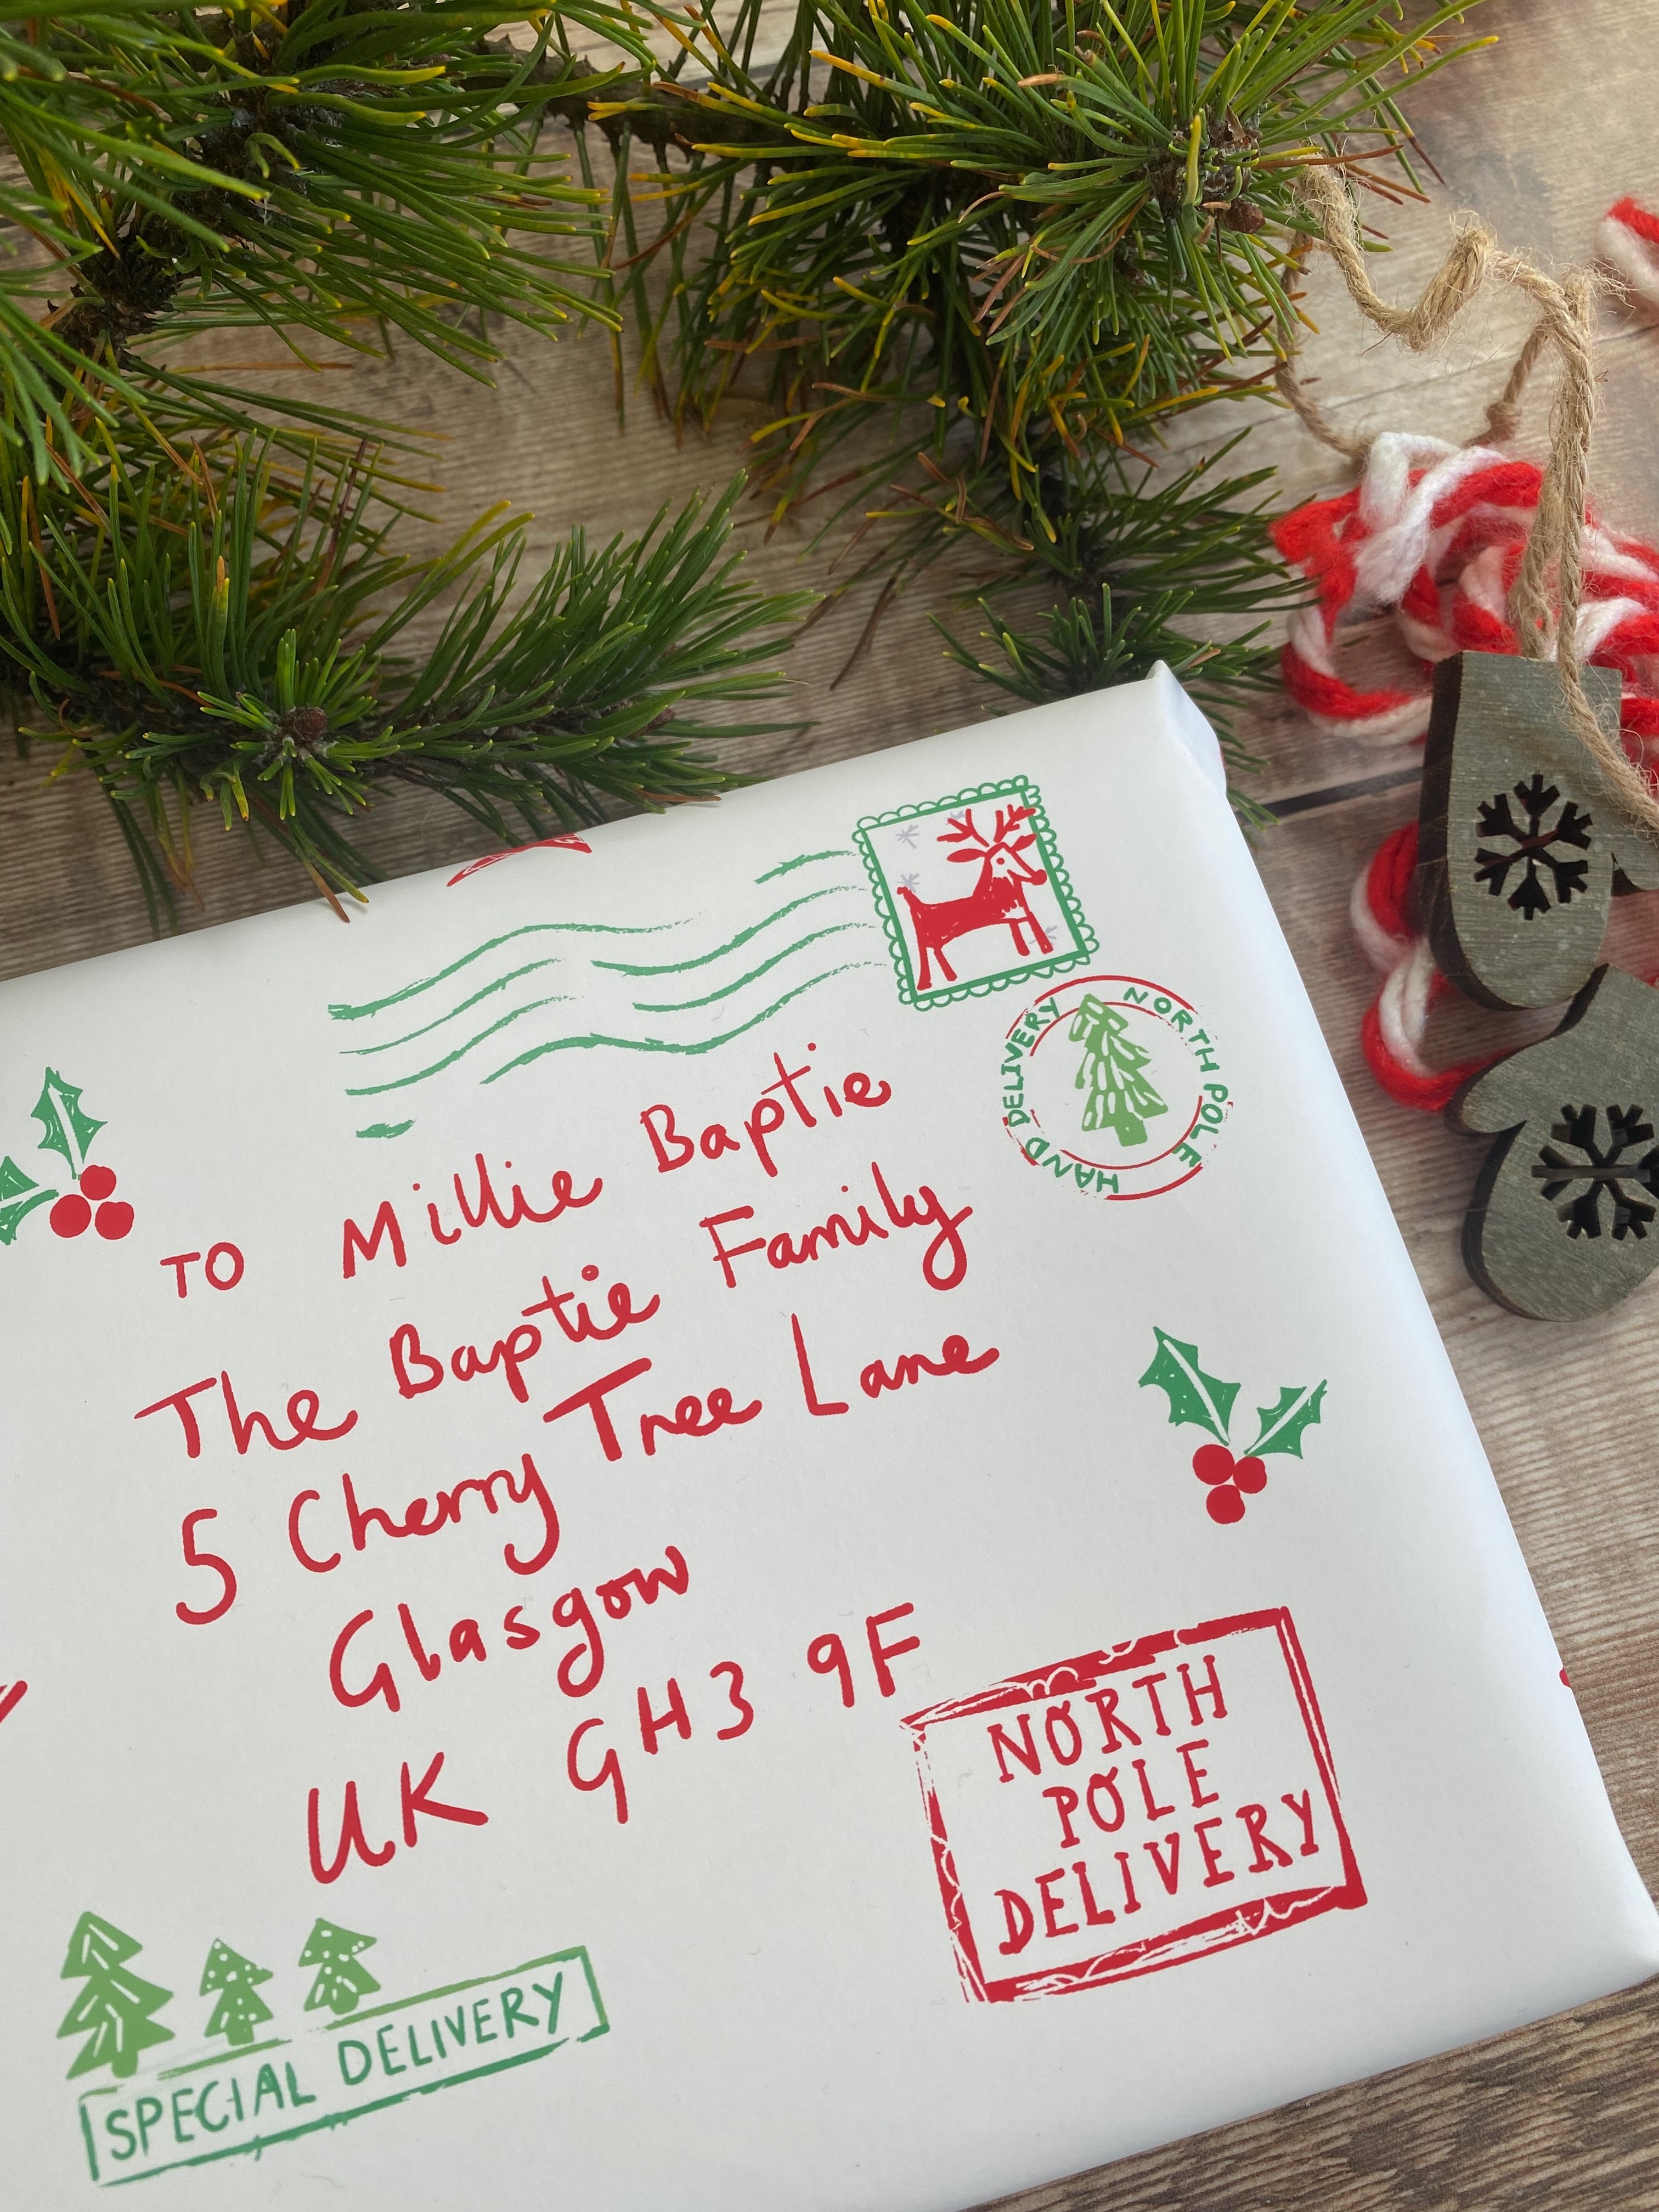 HAND DELIVERY NORTH POLE
TO Millie Baptie
The Baptie Family
5 Cherry Tree Lane
Glasgow
UK GH3 9F
NORTH
POLE
DELIVERY
SPECIAL DELIVERY